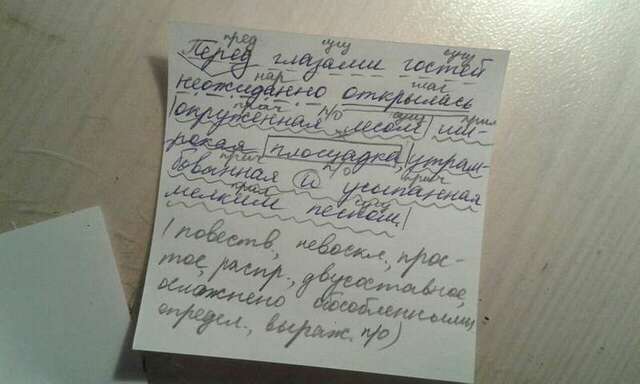 пред сущ сущ
Перед глазами гостей
нар глаг
неожиданно открылась
прич п/о сущ прил
окруженная лесом ши-
рокая площадка, утрам-
прич п/о прич
бованная и усыпанная
прил сущ
мелким песком.
(повеств, невоскл, прос-
тое, распр., двусоставное,
осложнено обособленными
определ., выраж. п/о)